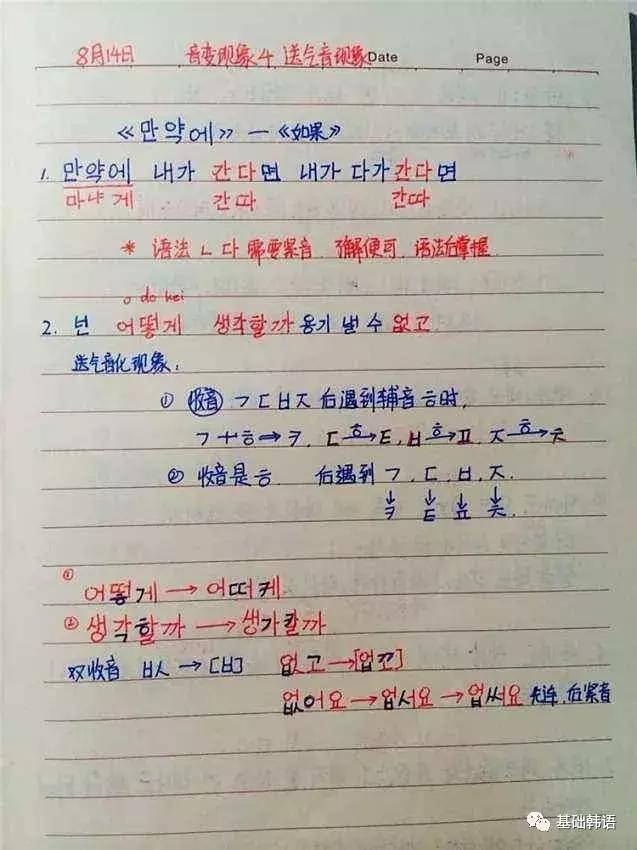 8月14日 音变现象4 送气音现象 Date Page
《만약에》—《如果》
1. 만약에 내가 간다면 내가 다가간다면
마냐게 간따 간따
* 语法ㄴ다 需要紧音 了解便可, 语法后掌握
o do kei
2. 넌 어떻게 생각할까 용기 낼 수 없고
送气音化现象:
① 收音 ㄱㄷㅂㅈ 后遇到辅音ㅎ时,
ㄱ+ㅎ⇒ㅋ, ㄷ ㅎ→ ㅌ, ㅂ ㅎ→ ㅍ, ㅈ ㅎ→ ㅊ
② 收音是ㅎ 后遇到ㄱ, ㄷ, ㅂ, ㅈ.
↓ ↓ ↓ ↓
ㅋ ㅌ ㅍ ㅊ.
① 어떻게 → 어떠케
② 생각할까 → 생가칼까
双收音 ㅂㅅ → [ㅂ] 없고 → [업꼬]
없어요 → 업서요 → 업써요 先连, 后紧音
基础韩语